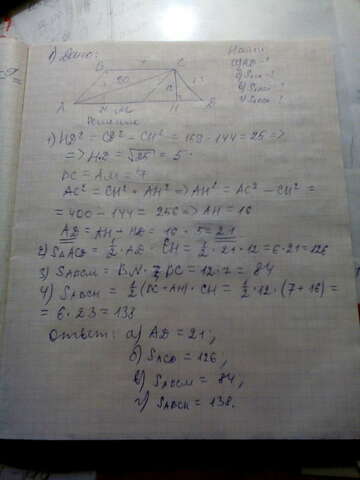 1) Дано:
Найти:
а) AD - ?
B 7 C
20 13
A N M H D
Решение
1) HD² = CD² - CH² = 169 - 144 = 25 =>
=> HD = √25 = 5.
BC = AM = 7
AC² = CH² + AH² => AH² = AC² - CH² =
= 400 - 144 = 256 => AH = 16
AD = AH + HD = 16 + 5 = 21
2) SΔACD = 1/2 · AD · CH = 1/2 · 21 · 12 = 6 · 21 = 126
3) SABCM = BN · BC = 12 · 7 = 84
4) SABCH = 1/2 (BC + AH) · CH = 1/2 · 12 · (7 + 16) =
= 6 · 23 = 138
Ответ: а) AD = 21;
б) SACD = 126;
в) SABCM = 84;
г) SABCH = 138.